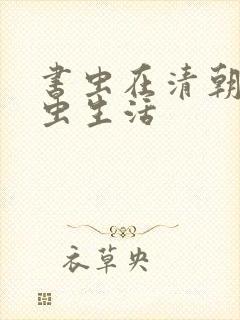 书虫在清朝
虫生活
衣草央